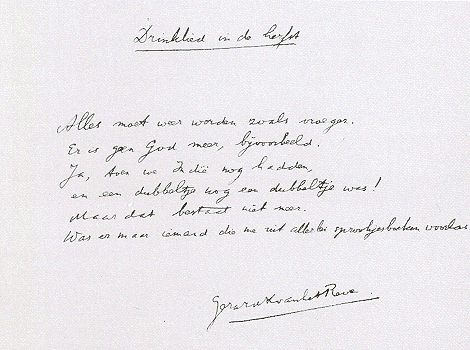 Drinklied in de herfst
Alles moet weer worden zoals vroeger.
Er is geen God meer, bijvoorbeeld.
Ja, toen we Indië nog hadden,
en een dubbeltje nog een dubbeltje was!
Maar dat bestaat niet meer.
Was er maar iemand die me uit allerlei sprookjesboeken voorlas
Gerard Kvanhet Reve.